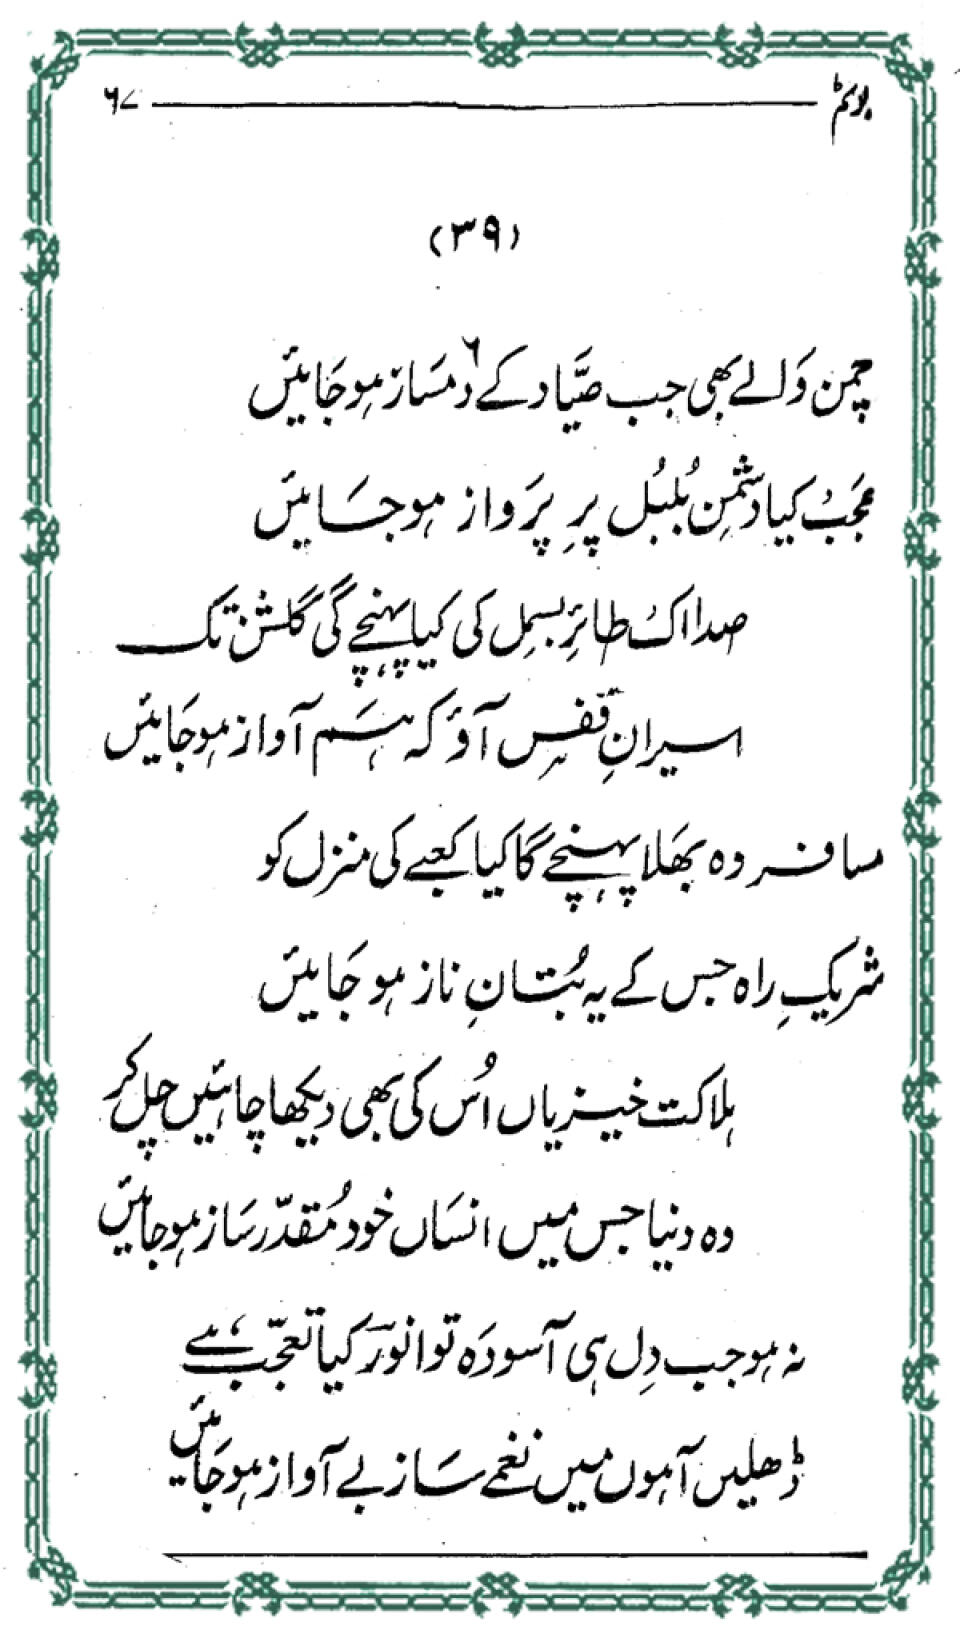 بوئم ۶۷
(۳۹)
چمن والے بھی جب صیّاد کے دمساز ہو جائیں
عجب کیا دشمنِ بُلبُل پرِ پَرواز ہو جائیں
صدا اک طائرِ بسمل کی کیا پہنچے گی گلشن تک
اسیرانِ قفس آؤ کہ ہم آواز ہو جائیں
مسافر وہ بھلا پہنچے گا کیا کعبے کی منزل کو
شریکِ راہ جس کے یہ بُتانِ ناز ہو جائیں
ہلاکت خیزیاں اُس کی بھی دیکھا چاہئیں چل کر
وہ دنیا جس میں انساں خود مُقدّر ساز ہو جائیں
نہ ہو جب دِل ہی آسودہ تو انورؔ کیا تعجّب ہے
ڈھلیں آہوں میں نغمے ساز بے آواز ہو جائیں